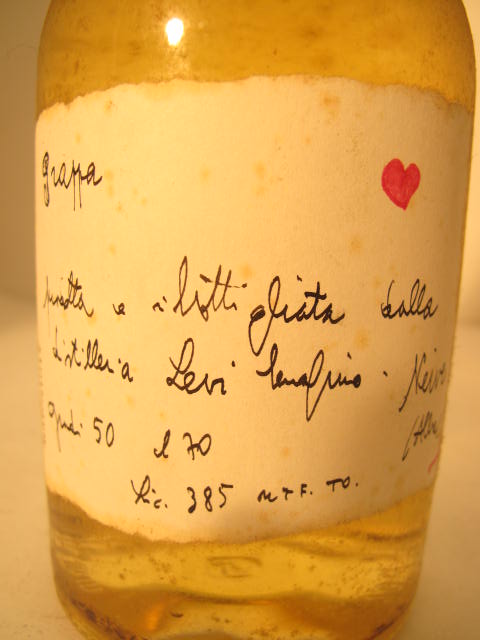 Grappa
prodotta e i bottigliata dalla
distilleria Levi Serafino. Neive
gradi 50 l 70 (Alba
Lic. 385 UTF. TO.